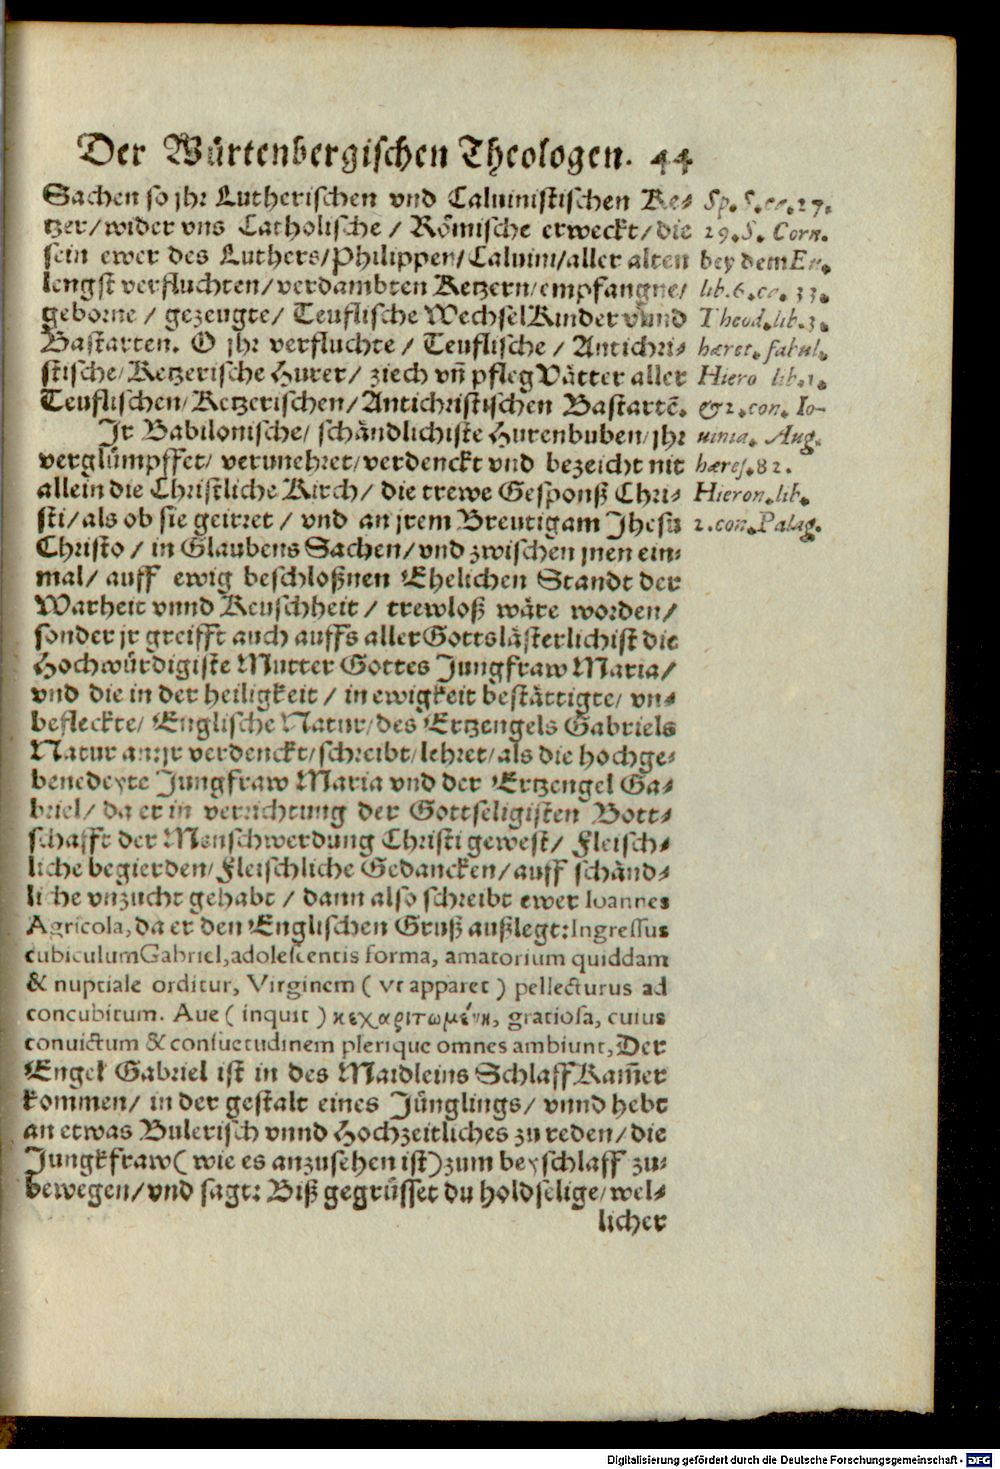 Der Würtenbergischen Theologen. 44
Sachen so jhr Lutherischen vnd Caluinistischen Ke-
tzer/ wider vns Catholische / Römische erweckt/ die
sein ewer des Luthers/ Philippen/ Caluini/ aller alten
lengst verfluchten/ verdambten Ketzern/ empfangne/
geborne / gezeugte/ Teuflische WechselKinder vnnd
Bastarten. O jhr verfluchte / Teuflische / Antichri-
stische/ Ketzerische Hurer/ ziech vñ pfleg Vätter aller
Teuflischen/ Ketzerischen/ Antichristischen Bastartẽ.
Jr Babilonische/ schändlichiste Hurenbuben/ jhr
verglümpffet/ verunehret/ verdenckt vnd bezeicht nit
allein die Christliche Kirch/ die trewe Gesponß Chri-
sti/ als ob sie geirret / vnd an jrem Breutigam Jhesu
Christo / in Glaubens Sachen/ vnd zwischen jnen ein-
mal/ auff ewig beschloßnen Ehelichen Standt der
Warheit vnnd Keuschheit / trewloß wäre worden/
sonder jr greifft auch auffs aller Gottslästerlichist die
Hochwürdigiste Mutter Gottes Jungfraw Maria/
vnd die in der heiligkeit / in ewigkeit bestättigte/ vn-
befleckte/ Englische Natur/ des Ertzengels Gabriels
Natur an: jr verdenckt/ schreibt/ lehret/ als die hochge-
benedeyte Jungfraw Maria vnd der Ertzengel Ga-
briel/ da er in verrichtung der Gottseligisten Bott-
schafft der Menschwerdung Christi gewest/ Fleisch-
liche begierden/ Fleischliche Gedancken/ auff schänd-
liche vnzucht gehabt / dann also schreibt ewer Ioannes
Agricola, da er den Englischen Gruß außlegt: Ingressus
cubiculum Gabriel, adolescentis forma, amatorium quiddam
& nuptiale orditur, Virginem ( vt apparet ) pellecturus ad
concubitum. Aue ( inquit ) κεχαριτωμένη, gratiosa, cuius
conuictum & consuetudinem plerique omnes ambiunt, Der
Engel Gabriel ist in des Maidleins SchlaffKam̃er
kommen/ in der gestalt eines Jünglings/ vnnd hebt
an etwas Bulerisch vnnd Hochzeitliches zu reden/ die
Jungkfraw ( wie es anzusehen ist) zum beyschlaff zu-
bewegen/ vnd sagt: Biß gegrüsset du holdselige/ wel-
licher
Sp. S. ca. 27.
29. S. Corn.
bey dem Eu.
lib. 6. ca. 33.
Theod. lib. 3.
hæret. fabul.
Hiero lib. 1.
& 2. con. Io-
uinia. Aug.
hæres. 82.
Hieron. lib.
2. con. Palag.
Digitalisierung gefördert durch die Deutsche Forschungsgemeinschaft - DFG